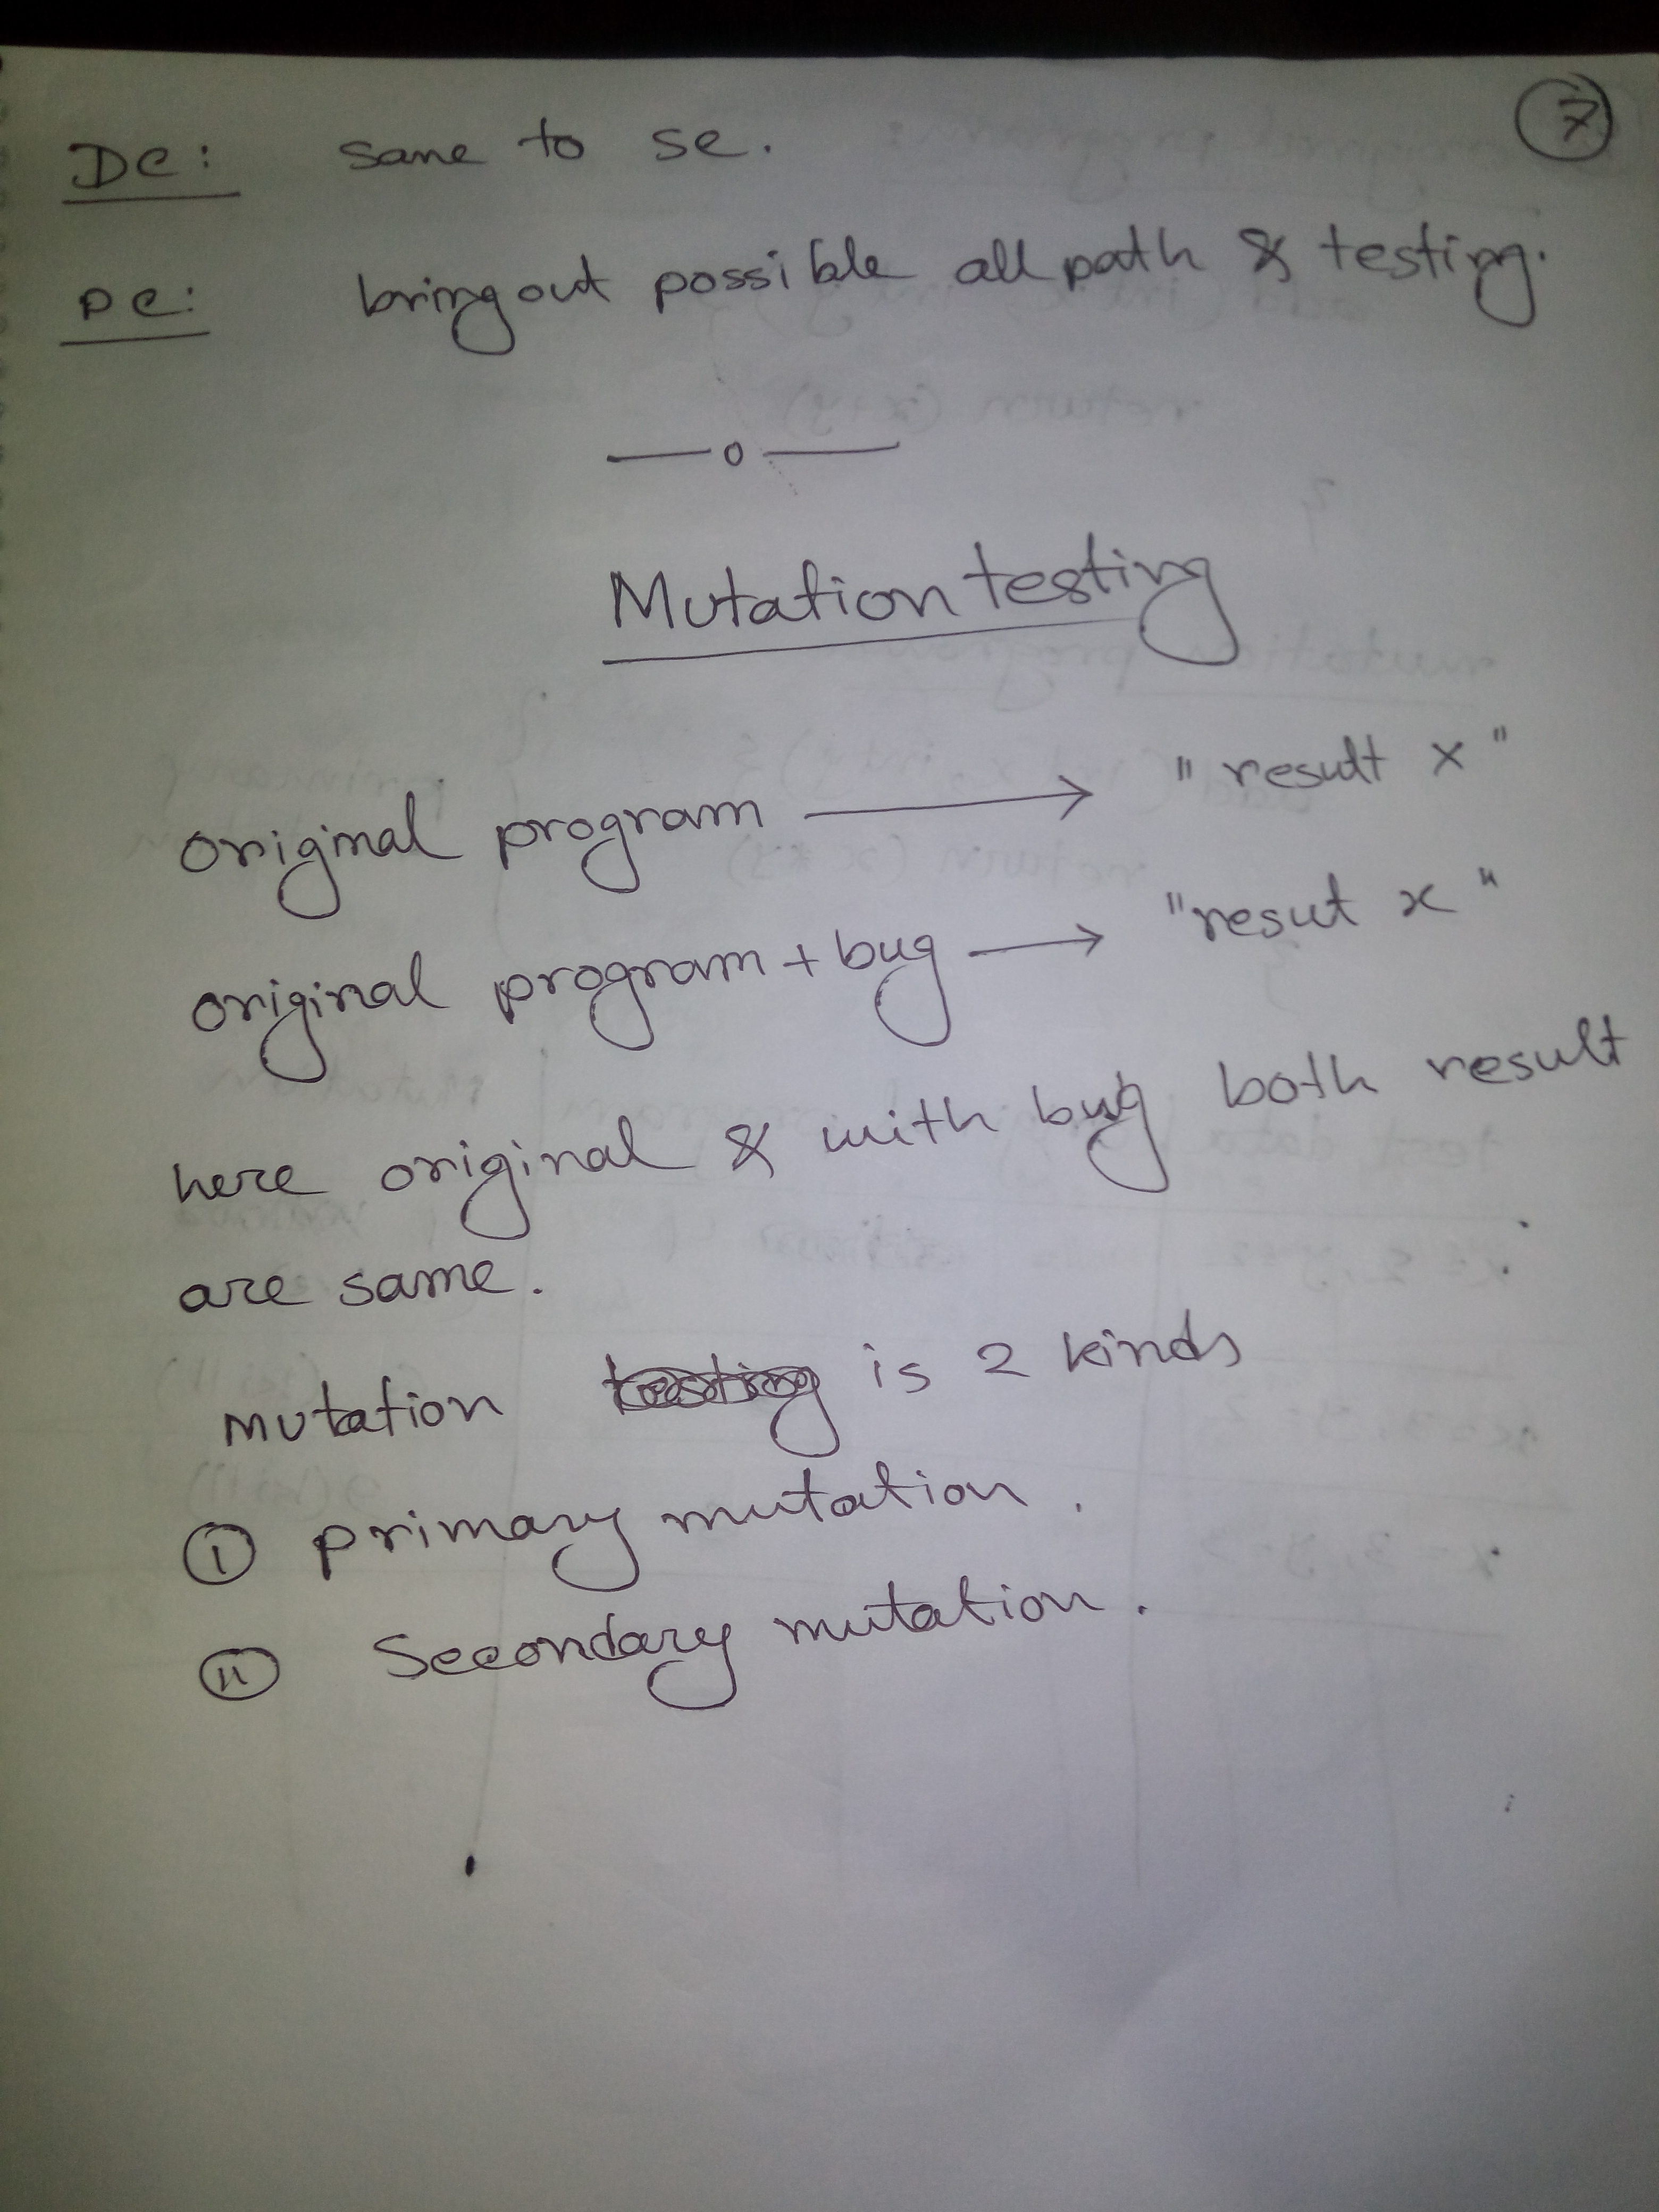 7
DC: same to SC.
PC: bring out possible all path & testing.
—o—
Mutation testing
original program → "result x"
original program + bug → "resut x"
here original & with bug both result
are same.
Mutation is 2 kinds
(i) primary mutation.
(ii) Secondary mutation.